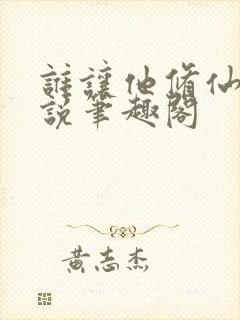 誰讓他修仙
說筆趣閣
黃志杰